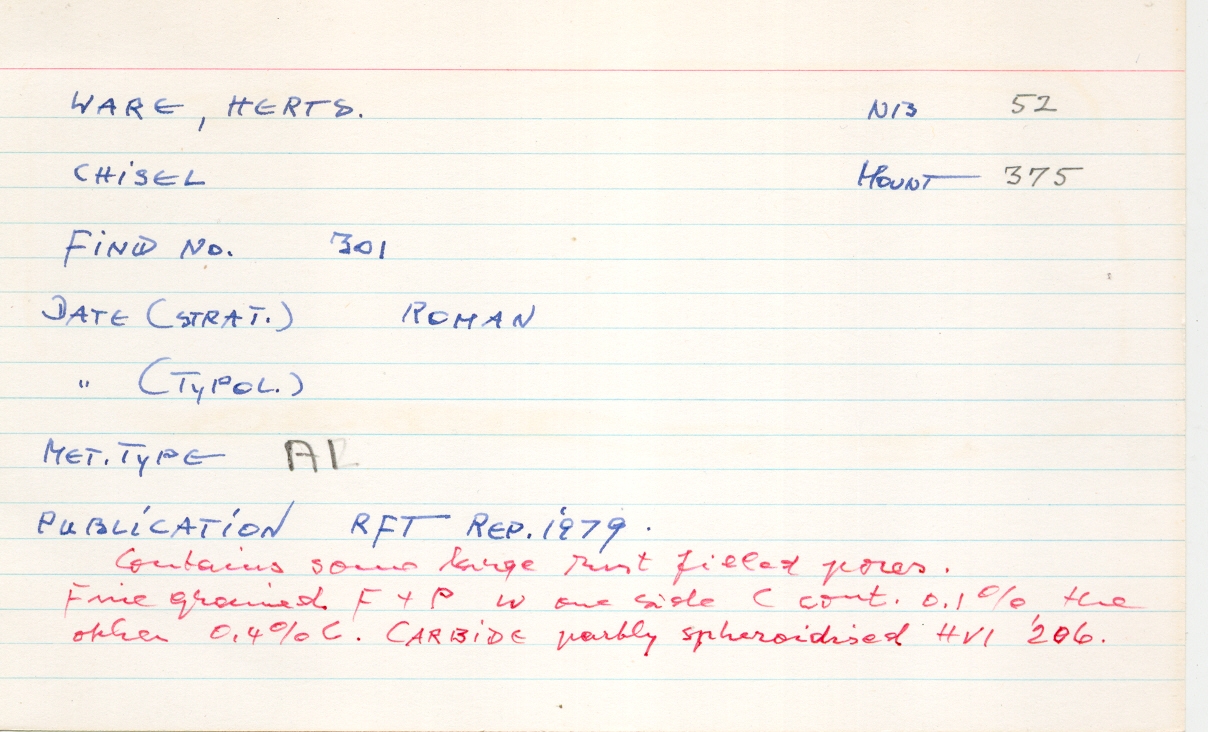 WARE, HERTS. NB 52
CHISEL MOUNT 375
FIND NO. 301
DATE (STRAT.) ROMAN
" (TYPOL.)
MET. TYPE A1
PUBLICATION RFT REP. 1979.
Contains some large rust filled pores.
Fine grained F + P w one side C cont. 0.1% the
other 0.4% C. CARBIDE partly spheroidised HV1 206.